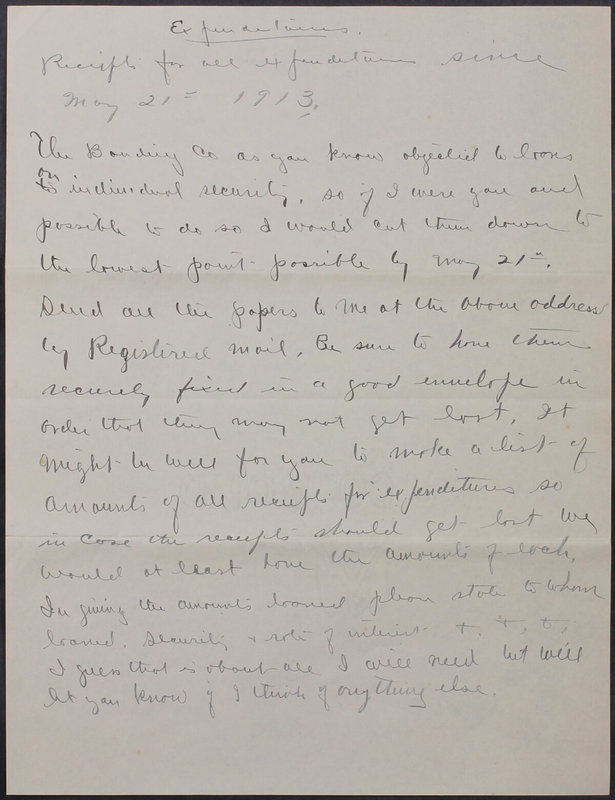 Expenditures.
Receipts for all expenditures since
May 21st 1913.
The Bonding Co as you know objected to loans
on individual security, so if I were you and
possible to do so I would cut them down to
the lowest point possible by May 21st.
Send all the papers to me at the above address
by Registered mail. Be sure to have them
securely fixed in a good envelope in
order that they may not get lost. It
might be well for you to make a list of
amounts of all receipts for expenditures so
in case the receipts should get lost we
would at least have the amounts of each.
In giving the amounts loaned please state to whom
loaned, security & rate of interest
I guess that is about all I will need but will
let you know if I think of anything else.